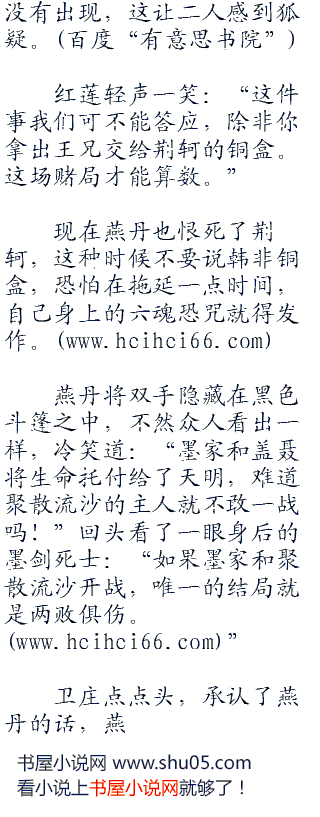 没有出现，这让二人感到狐
疑。(百度“有意思书院”)
红莲轻声一笑：“这件
事我们可不能答应，除非你
拿出王兄交给荆轲的铜盒。
这场赌局才能算数。”
现在燕丹也恨死了荆
轲，这种时候不要说韩非铜
盒，恐怕在拖延一点时间，
自己身上的六魂恐咒就得发
作。(www.hcihci66.com)
燕丹将双手隐藏在黑色
斗篷之中，不然众人看出一
样，冷笑道：“墨家和盖聂
将生命托付给了天明，难道
聚散流沙的主人就不敢一战
吗！”回头看了一眼身后的
墨剑死士：“如果墨家和聚
散流沙开战，唯一的结局就
是两败俱伤。
(www.hcihci66.com)”
卫庄点点头，承认了燕
丹的话，燕
书屋小说网 www.shu05.com
看小说上书屋小说网就够了！